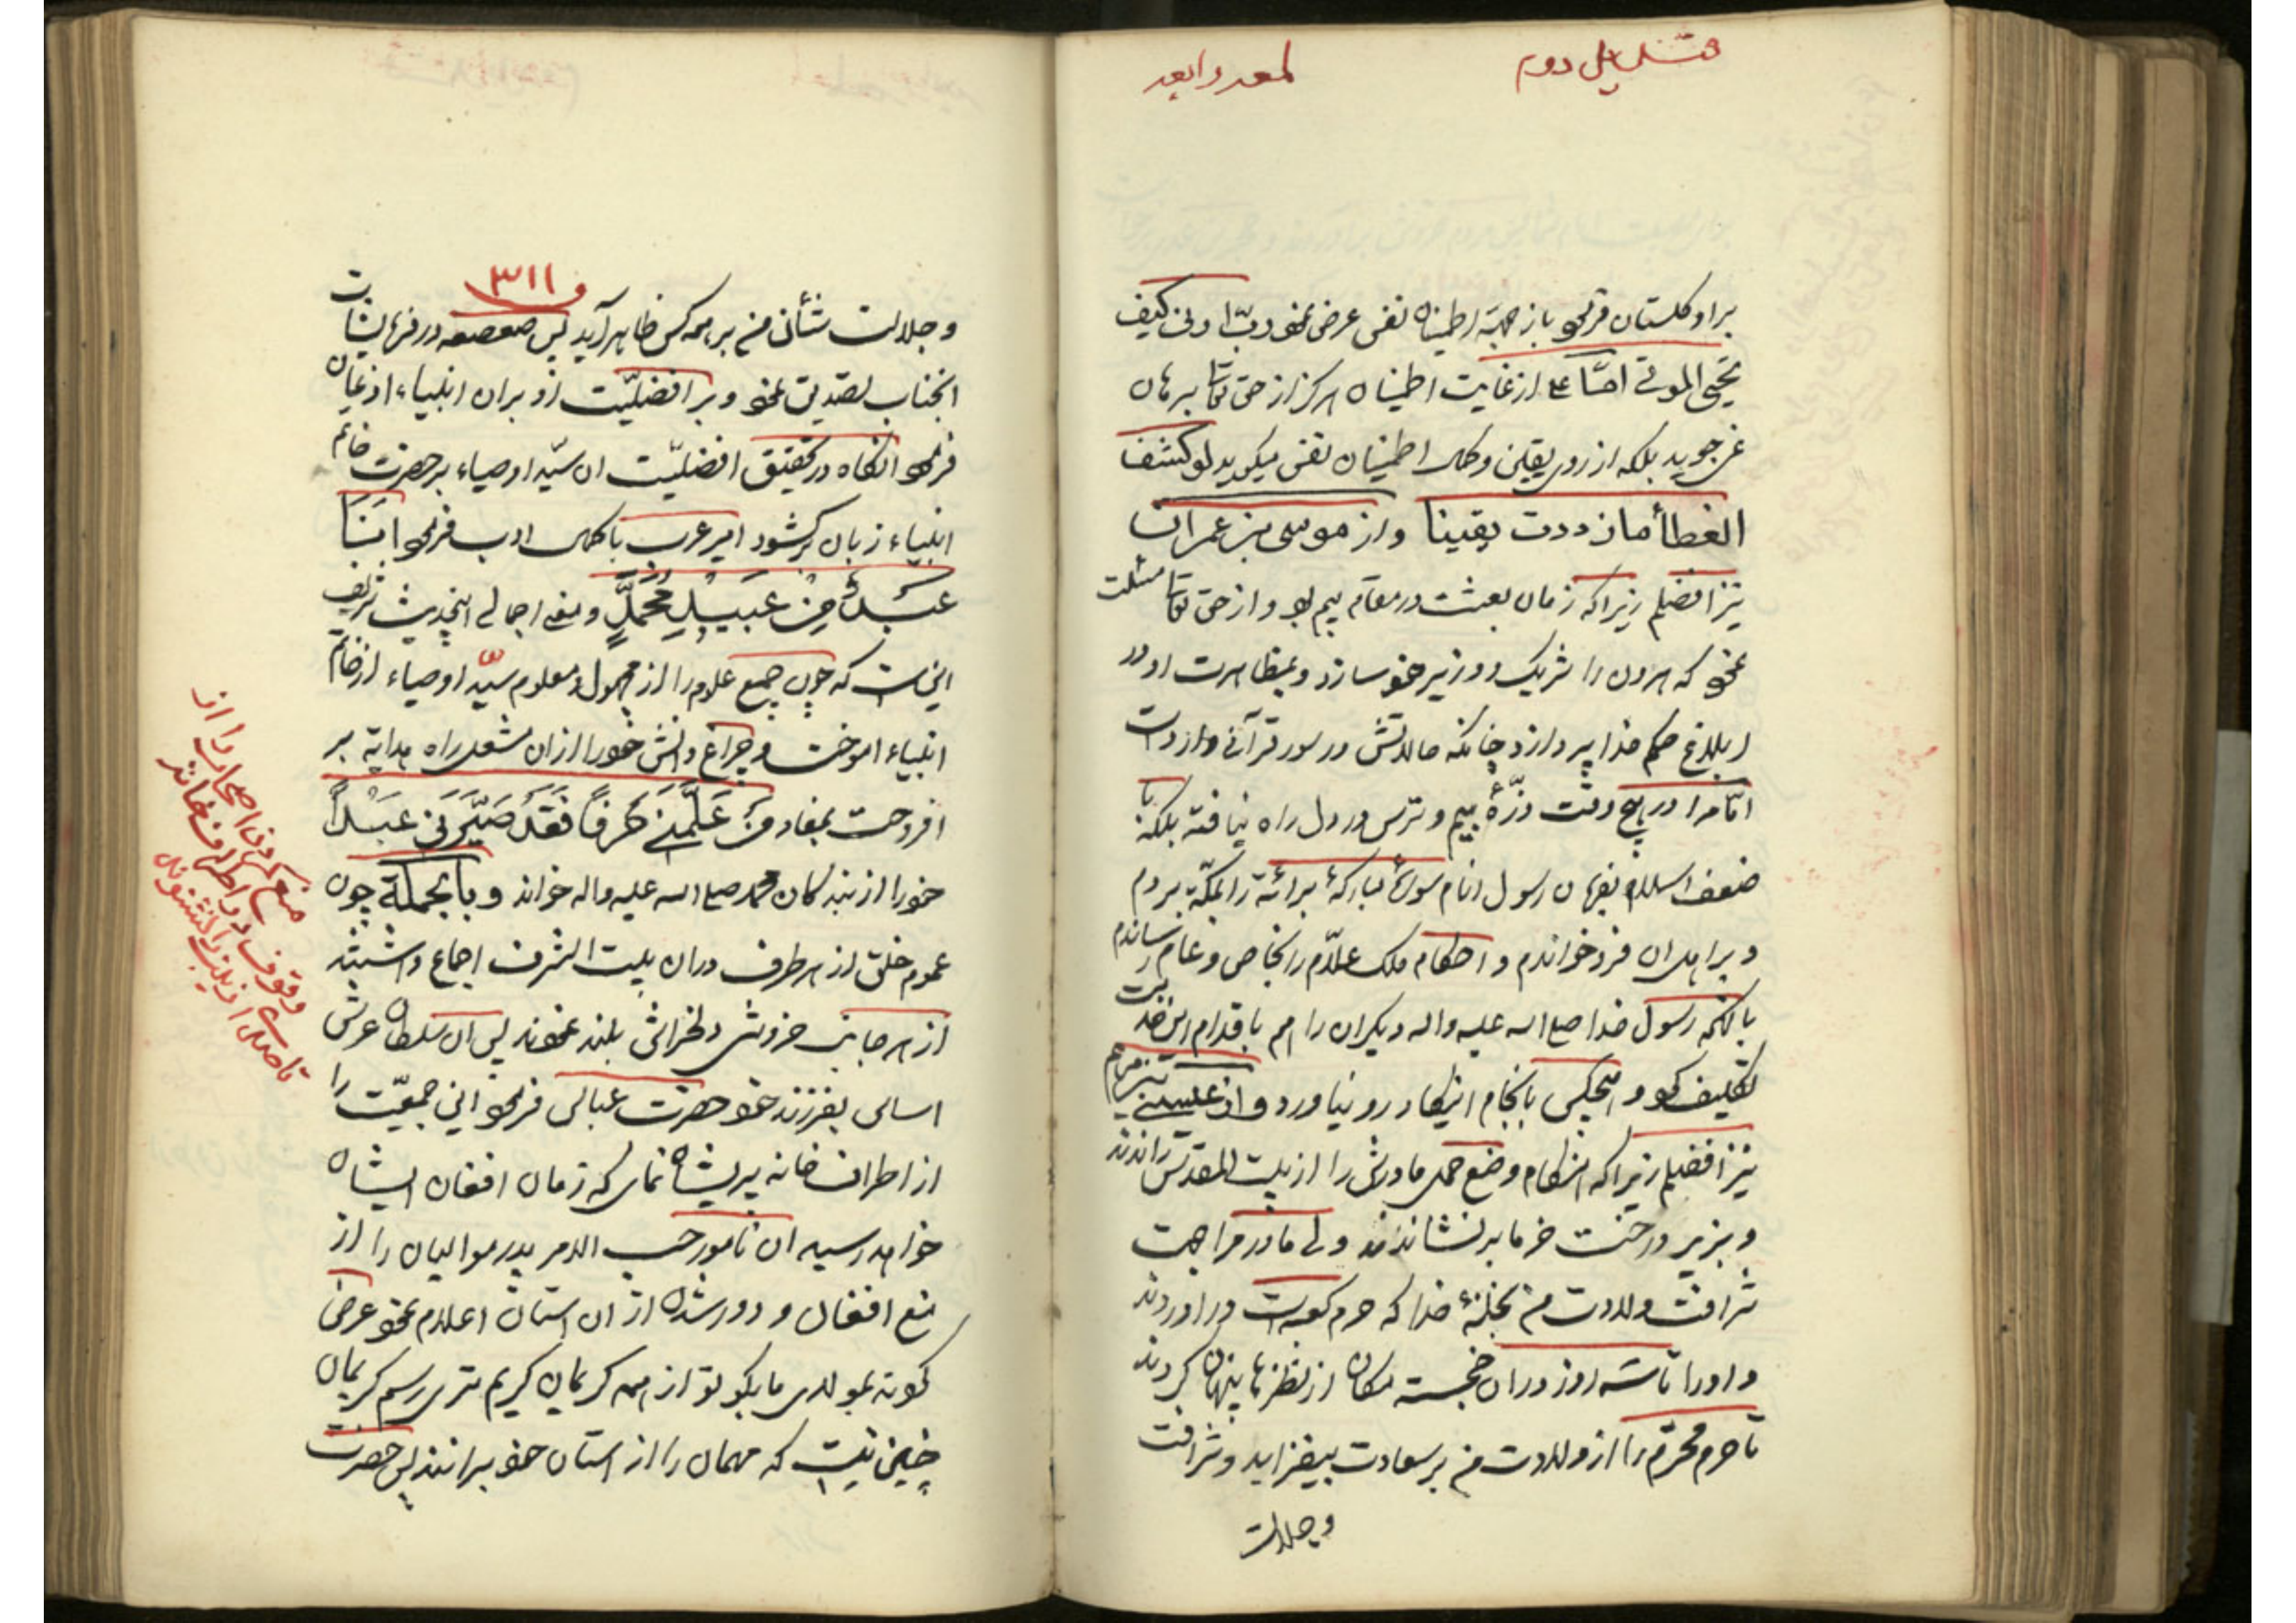 لمعه رابعه
دوم
براو گلستان فرمود باز جهة اطمینان نفس عرض نمود ربّ ارنی کیف
تحیی الموتی امّا علی از غایت اطمینان هرگز از حق تعالی برهان
نمی جوید بلکه از روی یقین و کمال اطمینان نفس میگوید لو کشف
الغطأ ما ازددت یقینا و از موسی بن عمران
نیز افضلم زیرا که زمان بعثت در مقام بیم بود و از حق تعالی مسئلت
نمود که هرون را شریک و وزیر خود سازد و بمظاهرت او در
ابلاغ حکم خدا پردازد چنانکه حالاتش در سور قرآنی وارد است
امّا مرا در هیچ وقت ذرّهٔ بیم و ترس در دل راه نیافته بلکه با
ضعف اسلام بفرمان رسول انام سورهٔ مبارکهٔ برائة را بمکّه بردم
و بر اهل ان فرو خواندم و احکام ملک علّام را بخاص و عام رساندم
با انکه رسول خدا صلی الله علیه واله دیگران را هم باقدام این خدمت
تکلیف کرد و هیچکس بانجام اینکار رو نیاورد و از عیسی بن مریم
نیز افضلم زیرا که هنگام وضع حمل مادرش را از بیت المقدس راندند
و بزیر درخت خرما بر نشاندند ولی مادر مرا جهت
شرافت ولادت من بخانهٔ خدا که حرم کعبه است در اوردند
و او را تا سه روز دران خجسته مکان از نظرها پنهان کردند
تا حرم محترم را از ولادت من بر سعادت بیفزاید و شرافت
و جلالت
و ۳۱۱
و جلالت شأن من بر همه کس ظاهر آید پس صعصعه در فرمایشات
انجناب تصدیق نمود و بر افضلیّت او بران انبیاء اذعان
فرمود انگاه در تحقیق افضلیّت ان سیّد اوصیاء بر حضرت خاتم
انبیاء زبان برگشود امیر عرب با کمال ادب فرمود انا
عبدٌ من عبید محمّدٍ و معنی اجمالی اینحدیث شریف
این است که چون جمیع علوم را از مجهول و معلوم سیّد اوصیاء از خاتم
انبیاء اموخت و چراغ دانش خود را ازان مشعل راه هدایة بر
افروخت بمفاد من علّمنی حرفاً فقد صیّرنی عبداً
خود را از بندگان محمد صلی الله علیه واله خواند و بالجملة چون
عموم خلق از هر طرف دران بیت الشرف اجماع داشتند
از هر جانب خروش دلخراش بلند نمودند پس ان سلطان عرش
اساس بفرزند خود حضرت عباس فرمود این جمعیّت را
از اطراف خانه پریشان نمای که زمان افغان ایشان
خواهد رسید ان نامور حسب الامر پدر موالیان را از
منع افغان و دور شدن از ان استان اعلام نمود عرض
کردند بمولای ما بگو تو از همه کریمان کریم تری رسم کریمان
چنین نیست که مهمان را از استان خود برانند پس حضرت
منع کردن اصحاب را از
وقوف در اطراف خانه